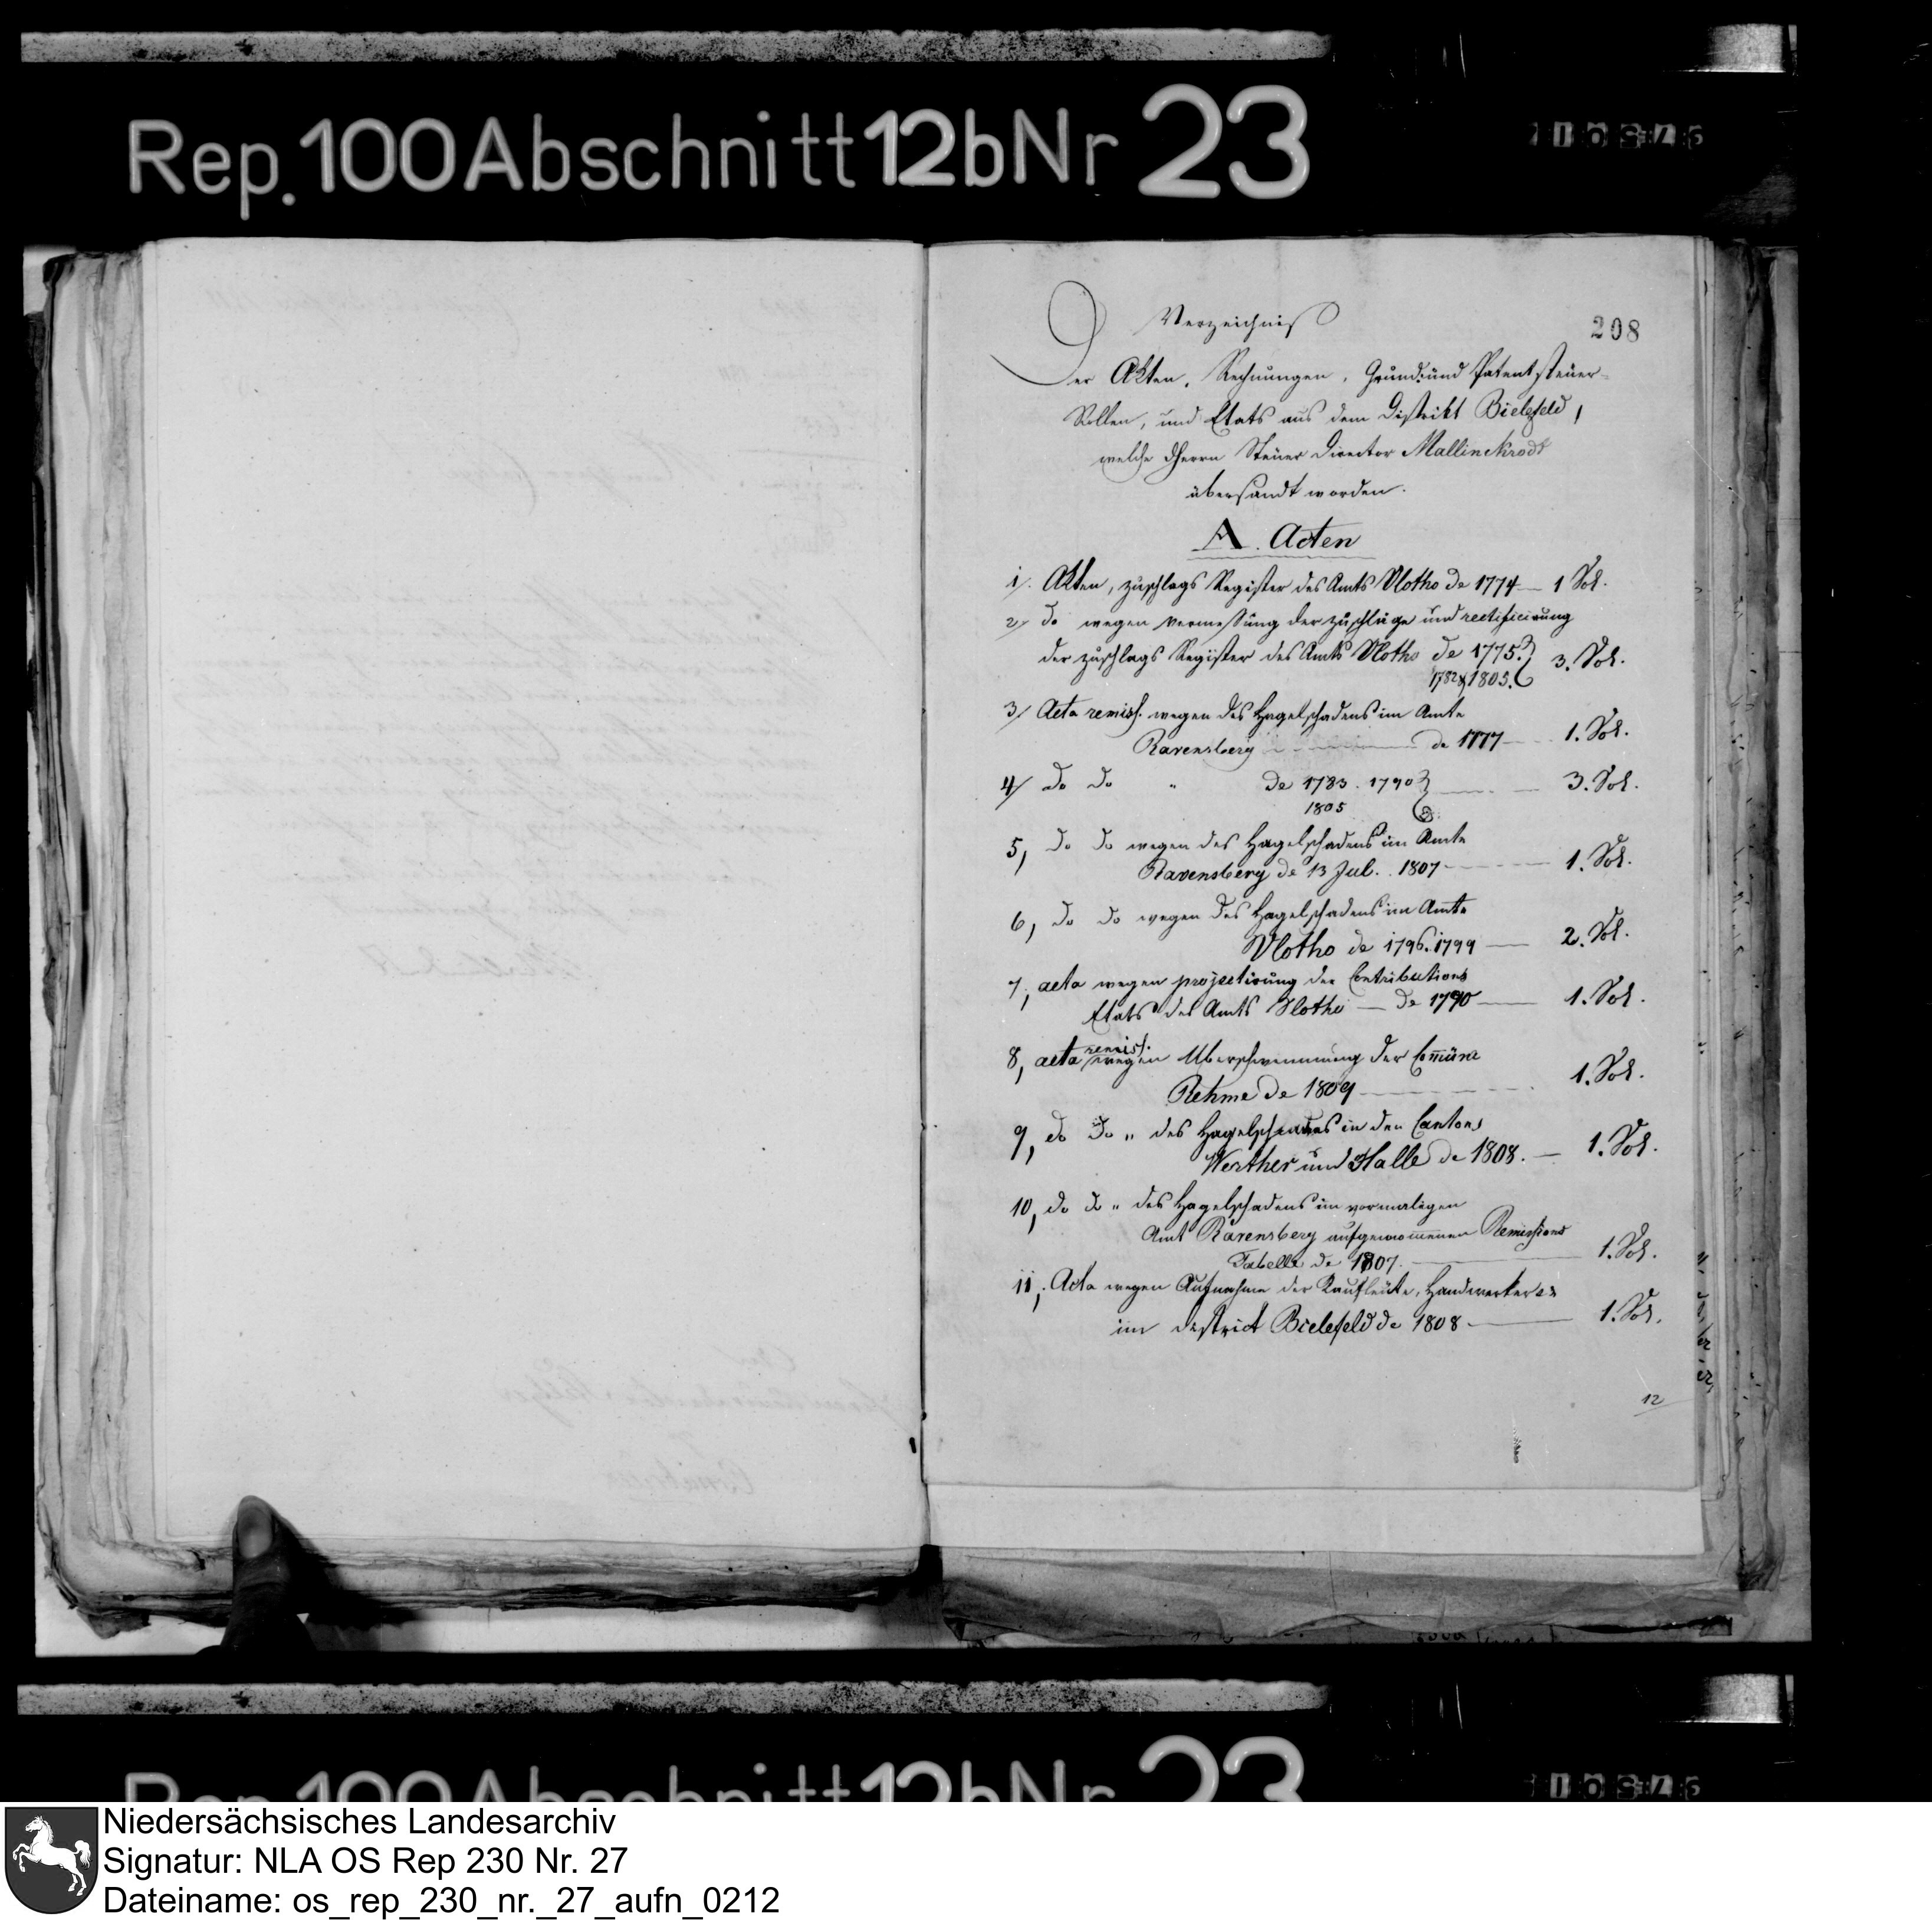 Rep. 100 Abschnitt 12b Nr 23
208
Verzeichniß
Der Akten, Rechnungen, Grund: und Patentsteuer-
Rollen, und Etats aus dem Distrikt Bielefeld,
welche dHerrn Steuer Director Mallinckrodt
übersandt worden.
A. Acten
1/. Akten, Zuschlags Register des Amts Vlotho de 1774 — 1 Vol.
2/. do wegen Vermessung der Zuschläge und rectificirung
der Zuschlags Register des Amts Vlotho de 1775. 3. Vol.
1782 & 1805.
3/ Acta remiss. wegen des Hagelschadens im Amte
Ravensberg de 1777 — 1. Vol.
4/ do do " de 1783. 1790 — 3. Vol.
1805
5, do do wegen des Hagelschadens im Amte
Ravensberg de 13 Jul. 1807 — 1. Vol.
6, do do wegen des Hagelschadens im Amte
Vlotho de 1796. 1799 — 2. Vol.
7, acta wegen projectirung der Contributions
Etats des Amts Vlotho — de 1790 — 1. Vol.
8, acta remiss. wegen Überschwemmung der Com̅üne
Rehme de 1809 — 1. Vol.
9, do do " des Hagelschadens in den Cantons
Werther und Halle de 1808. — 1. Vol.
10, do do " des Hagelschadens im vormaligen
Amt Ravensberg aufgenommenen Remissions
Tabelle de 1807. — 1. Vol.
11, Acta wegen Aufnahme der Kaufleute, Handwerker
im District Bielefeld de 1808 — 1. Vol.
12
Rep. 100 Abschnitt 12b Nr 23
Niedersächsisches Landesarchiv
Signatur: NLA OS Rep 230 Nr. 27
Dateiname: os_rep_230_nr._27_aufn_0212